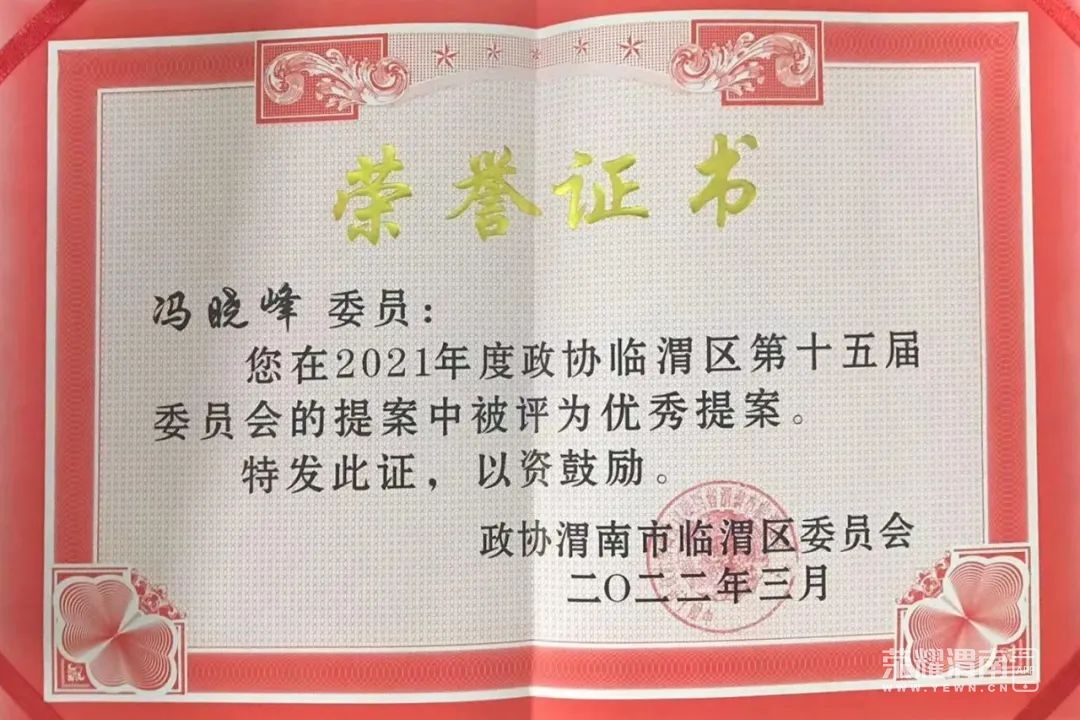 荣誉证书
冯晓峰 委员：
您在2021年度政协临渭区第十五届
委员会的提案中被评为优秀提案。
特发此证，以资鼓励。
政协渭南市临渭区委员会
二〇二二年三月
荣耀渭南
WWW.YEWN.CN